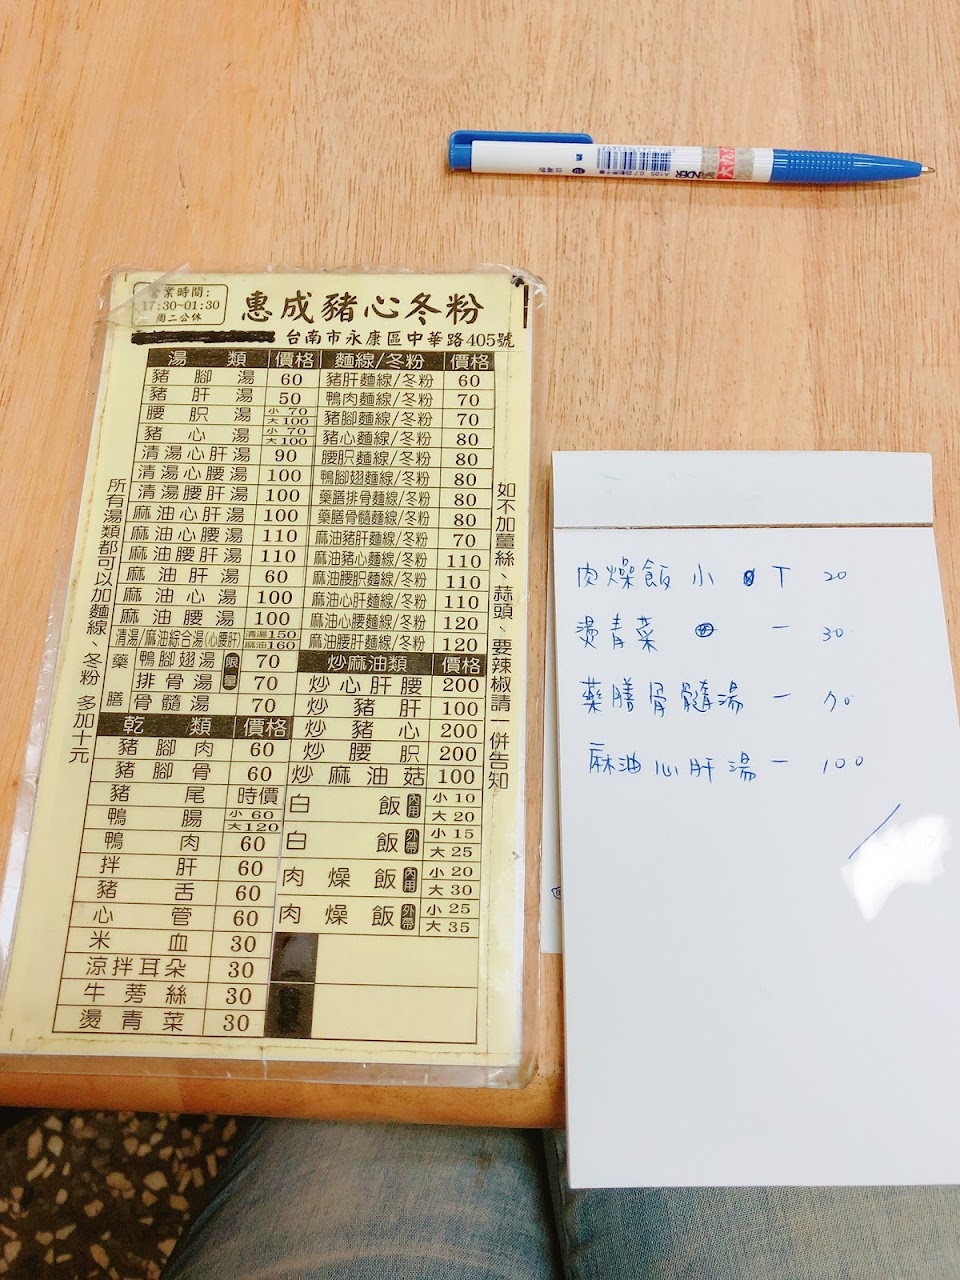 營業時間:
17:30~01:30
周二公休
惠成豬心冬粉
台南市永康區中華路405號
湯類 價格
豬腳湯 60
豬肝湯 50
腰脤湯 小 70 大 100
豬心湯 小 70 大 100
清湯心肝湯 90
清湯心腰湯 100
清湯腰肝湯 100
麻油心肝湯 100
麻油心腰湯 110
麻油腰肝湯 110
麻油肝湯 60
麻油心湯 100
麻油腰湯 100
清湯/麻油綜合湯(心腰肝) 清湯150 麻油160
藥膳
鴨腳翅湯 限量 70
排骨湯 70
骨髓湯 70
乾類 價格
豬腳肉 60
豬腳骨 60
豬尾 時價
鴨腸 小 60 大 120
鴨肉 60
拌肝 60
豬舌 60
心管 60
米血 30
涼拌耳朵 30
牛蒡絲 30
燙青菜 30
麵線/冬粉 價格
豬肝麵線/冬粉 60
鴨肉麵線/冬粉 70
豬腳麵線/冬粉 70
豬心麵線/冬粉 80
腰脤麵線/冬粉 80
鴨腳翅麵線/冬粉 80
藥膳排骨麵線/冬粉 80
藥膳骨髓麵線/冬粉 80
麻油豬肝麵線/冬粉 70
麻油豬心麵線/冬粉 110
麻油腰脤麵線/冬粉 110
麻油心肝麵線/冬粉 110
麻油心腰麵線/冬粉 120
麻油腰肝麵線/冬粉 120
炒麻油類 價格
炒心肝腰 200
炒豬肝 100
炒豬心 200
炒腰脤 200
炒麻油菇 100
白飯 內用 小 10 大 20
白飯 外帶 小 15 大 25
肉燥飯 內用 小 20 大 30
肉燥飯 外帶 小 25 大 35
所有湯類都可以加麵線、冬粉 多加十元
如不加薑絲、蒜頭、要辣椒請一併告知
肉燥飯 小 T 20
燙青菜 一 30
藥膳骨髓湯 一 70
麻油心肝湯 一 100